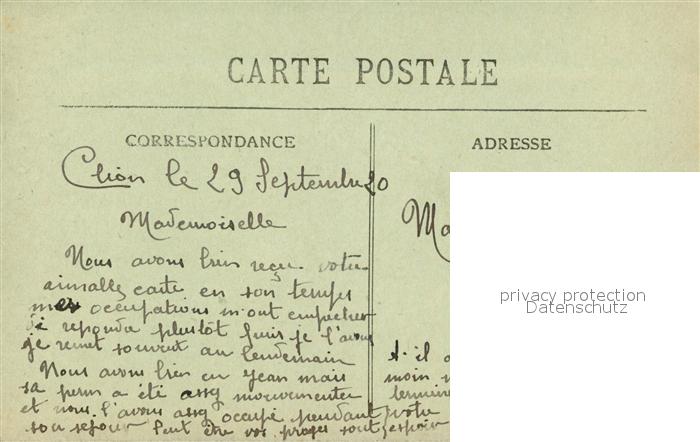 CARTE POSTALE
CORRESPONDANCE
ADRESSE
Clion le 29 Septembre 20
Mademoiselle
Nous avons bien reçu votre
aimable carte en son temps
mes occupations m'ont empecher
de repondu plustôt puis je l'avoue
je remet souvent au lendemain
Nous avons bien eu Jean mais
sa perm a été assez mouvementée
et nous l'avons assez occupé pendant
son sejour Peut être vos projes sont
Ma
A. il a
moin
termine
votre
espoir
privacy protection
Datenschutz